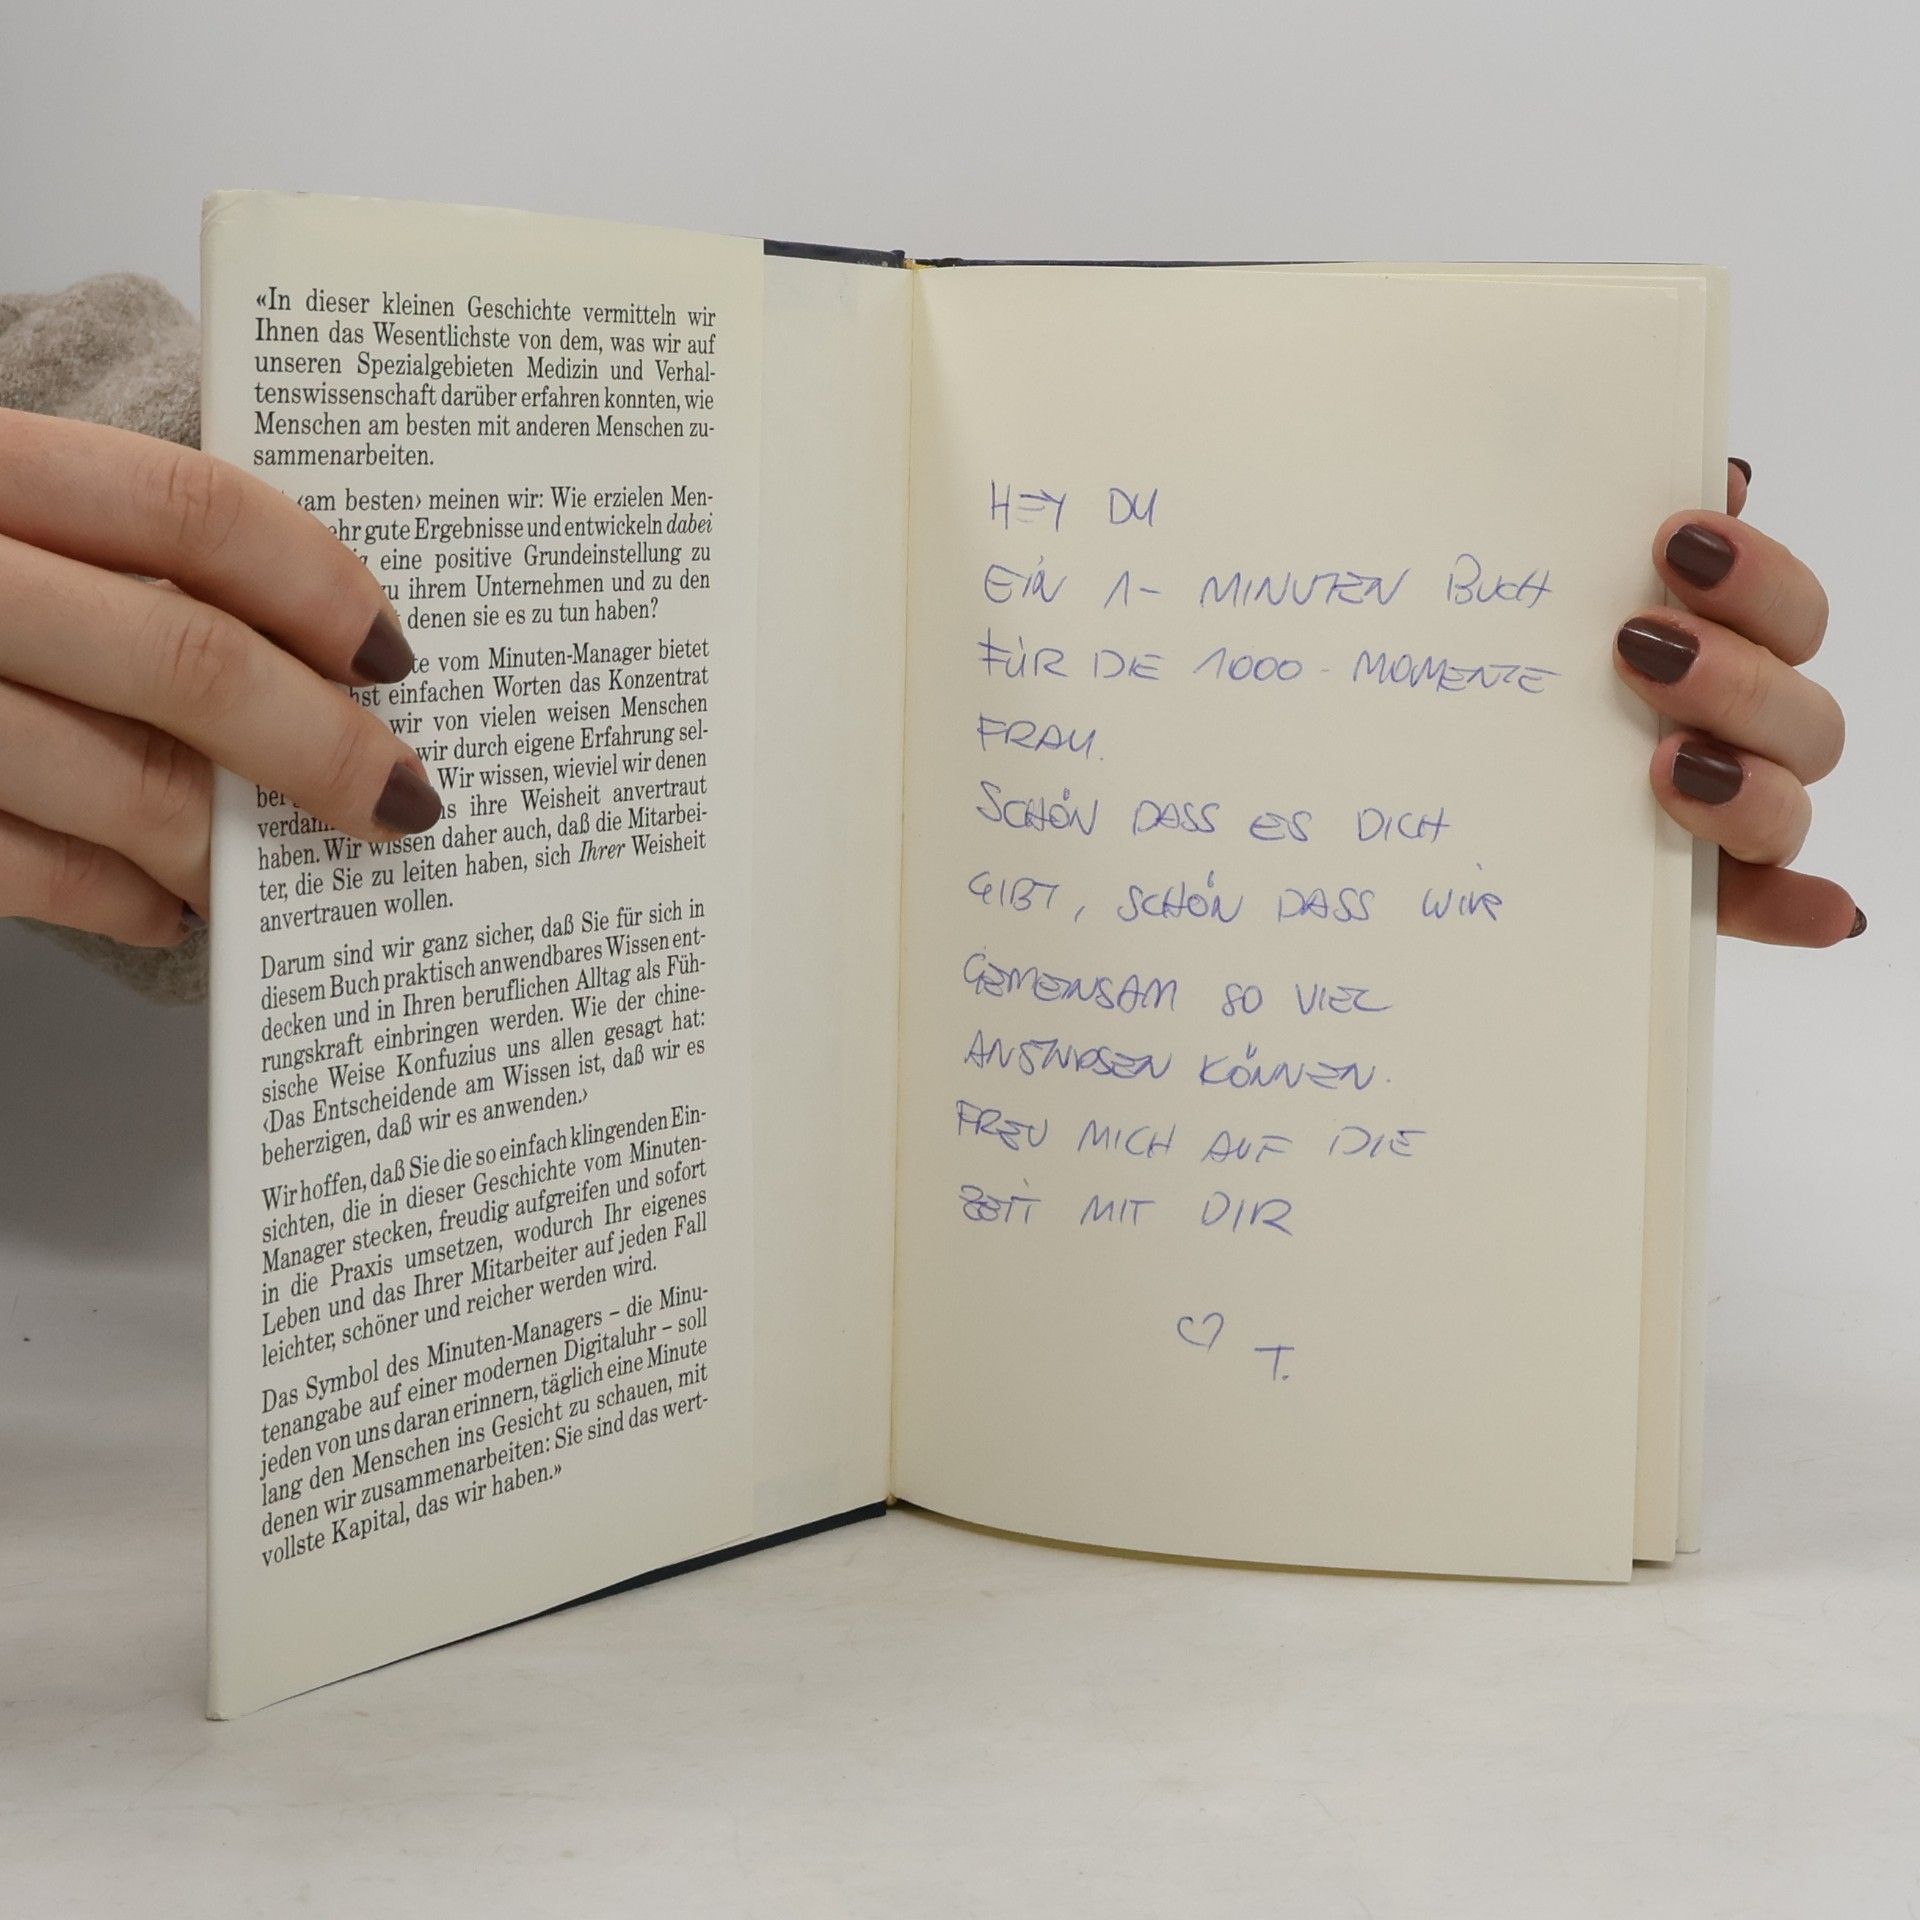 «In dieser kleinen Geschichte vermitteln wir
Ihnen das Wesentlichste von dem, was wir auf
unseren Spezialgebieten Medizin und Verhal-
tenswissenschaft darüber erfahren konnten, wie
Menschen am besten mit anderen Menschen zu-
sammenarbeiten.
‹am besten› meinen wir: Wie erzielen Men-
gute Ergebnisse und entwickeln dabei
eine positive Grundeinstellung zu
ihrem Unternehmen und zu den
denen sie es zu tun haben?
vom Minuten-Manager bietet
einfachen Worten das Konzentrat
wir von vielen weisen Menschen
wir durch eigene Erfahrung sel-
Wir wissen, wieviel wir denen
ihre Weisheit anvertraut
haben. Wir wissen daher auch, daß die Mitarbei-
ter, die Sie zu leiten haben, sich Ihrer Weisheit
anvertrauen wollen.
Darum sind wir ganz sicher, daß Sie für sich in
diesem Buch praktisch anwendbares Wissen ent-
decken und in Ihren beruflichen Alltag als Füh-
rungskraft einbringen werden. Wie der chine-
sische Weise Konfuzius uns allen gesagt hat:
‹Das Entscheidende am Wissen ist, daß wir es
beherzigen, daß wir es anwenden.›
Wir hoffen, daß Sie die so einfach klingenden Ein-
sichten, die in dieser Geschichte vom Minuten-
Manager stecken, freudig aufgreifen und sofort
in die Praxis umsetzen, wodurch Ihr eigenes
Leben und das Ihrer Mitarbeiter auf jeden Fall
leichter, schöner und reicher werden wird.
Das Symbol des Minuten-Managers – die Minu-
tenangabe auf einer modernen Digitaluhr – soll
jeden von uns daran erinnern, täglich eine Minute
lang den Menschen ins Gesicht zu schauen, mit
denen wir zusammenarbeiten: Sie sind das wert-
vollste Kapital, das wir haben.»
HEY DU
EIN 1- MINUTEN BUCH
FÜR DIE 1000 - MOMENTE
FRAU.
SCHÖN DASS ES DICH
GIBT, SCHÖN DASS WIR
GEMEINSAM SO VIEL
KÖNNEN.
FREU MICH AUF DIE
ZEIT MIT DIR
♡ T.